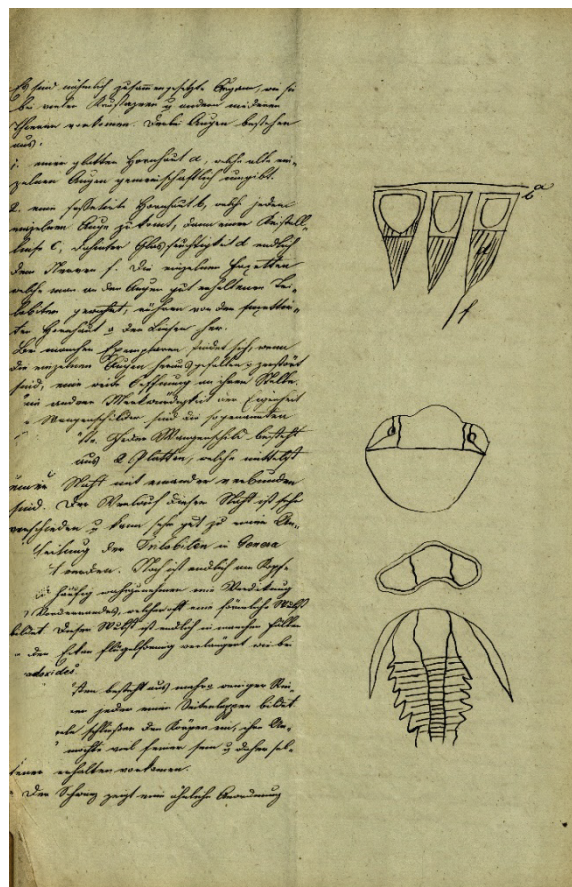 Es sind nähmlich zusammengesetzte Organe, wie sie
bei vielen Krustazeen u andern niederen
Thieren vorkomen. Derlei Augen bestehen
aus:
1. einer glatten Hornhaut a, welche alle ein-
zelnen Augen gemeinschaftlich umgibt.
2. eine Hornhaut b, welch jedem
einzelnen Auge zukomt, dann einer Kristall-
linse c, dahinter Glasfeuchtigkeit d endlich
dem Nerven f. Die einzelnen Fazetten
welche man an den Augen gut erhaltener Tri-
lobiten gewahrt, rühren von der fazettir-
ten Hornhaut o der Linsen her.
Bei manchen Exemplaren findet sich, wenn
die einzelnen Augen herausgefallen o zerstört
sind, eine weite Oeffnung an ihrer Stelle.
andere Merkwürdigkeit der
Wangenschilder sind die sogenannten
Jeder Wangenschild besteht
aus 2 Platten, welche mittelst
Naht mit einander verbunden
sind. Der Verlauf dieser Naht ist sehr
verschieden u kann sehr gut zu einer Ein-
theilung der Trilobiten in Genera
werden. Noch ist endlich am Kopfe
häufig wahrzunehmen eine Verdickung
Vorderrandes, welcher oft eine förmliche Wulst
bildet. Dieser Wulst ist endlich in manchen Fällen
den Ecken flügelförmig verlängert wie bei
besteht aus mehr o weniger Rin-
jeder einen Seitenlappen bildet
schließen den Körper ein, ihre
viel feiner sein u daher sel-
tener erhalten vorkomen.
Der Schwanz zeigt eine ähnliche Anordnung
a
b
d
f